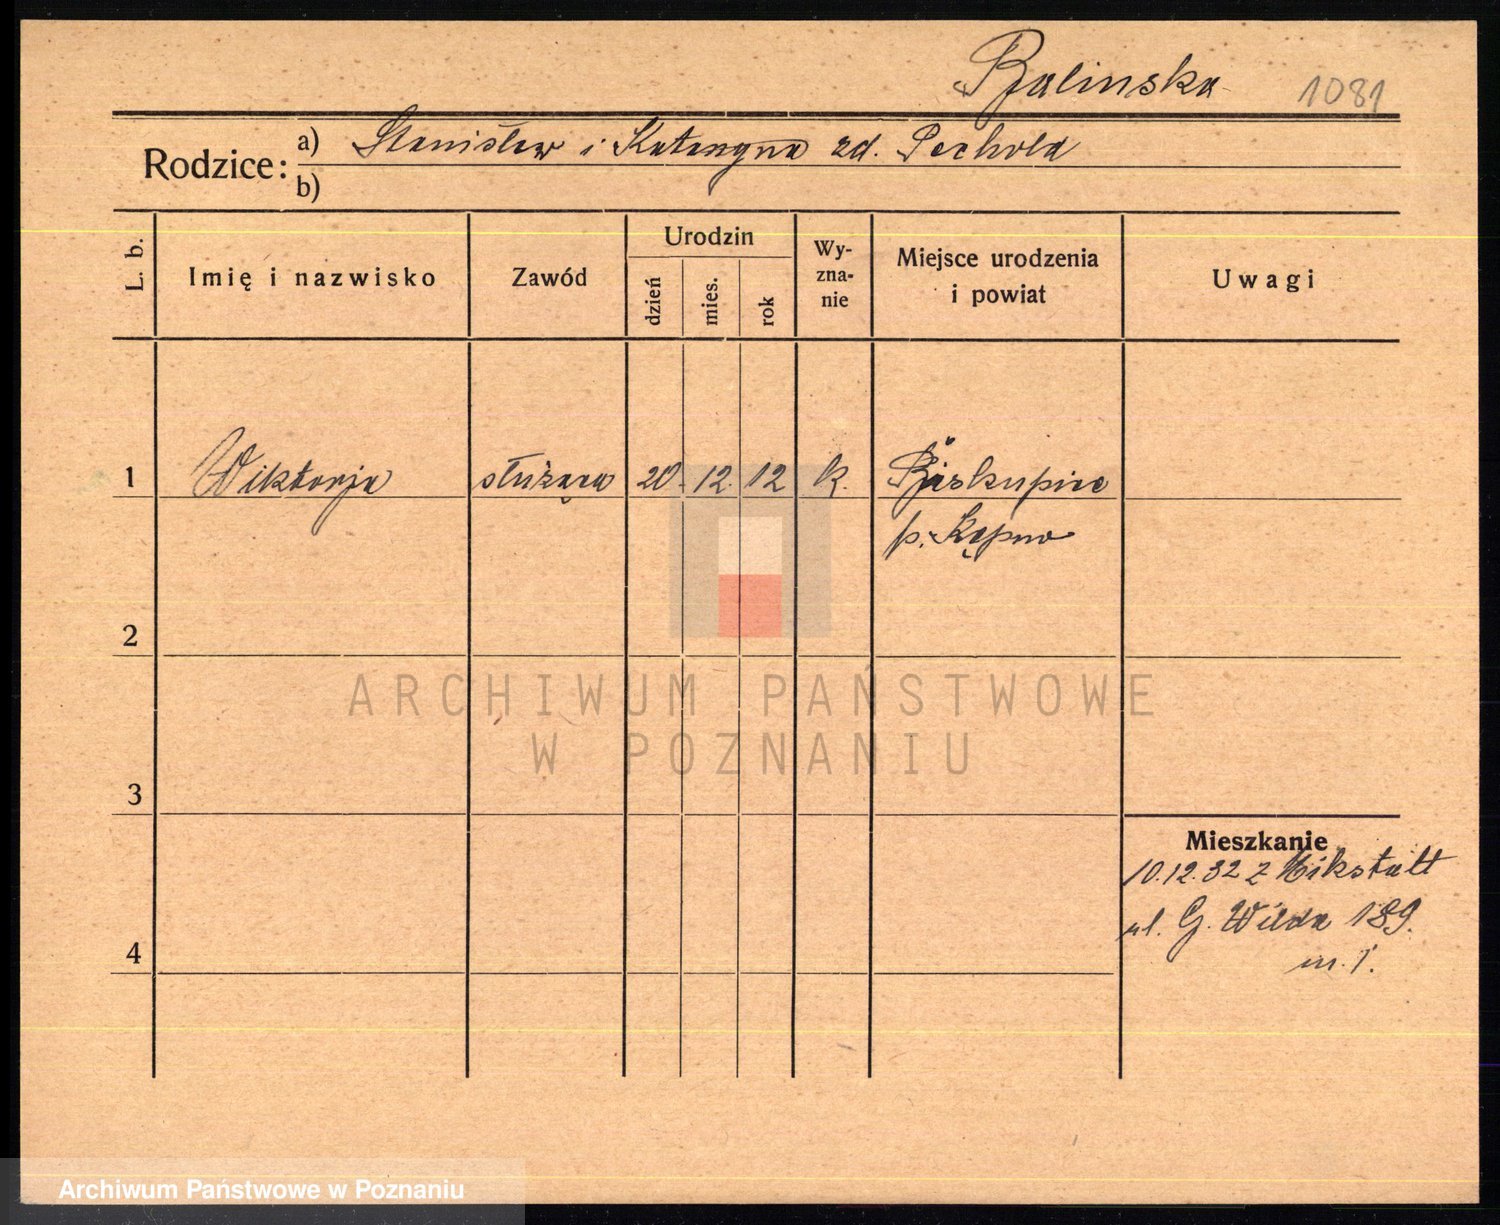 Balinska 1081
Rodzice: a) Stanisław i Katarzyna zd. Pechola
b)
L. b. Imię i nazwisko Zawód Urodzin dzień mies. rok Wy-zna-nie Miejsce urodzenia i powiat Uwagi
1 Wiktorja służąca 20. 12. 12 k. Biskupice
p. Kępno
2
ARCHIWUM PAŃSTWOWE
W POZNANIU
3
Mieszkanie
10.12.32 z Mikstatt
ul. G. Wilda 189.
4
m. 1.
Archiwum Państwowe w Poznaniu